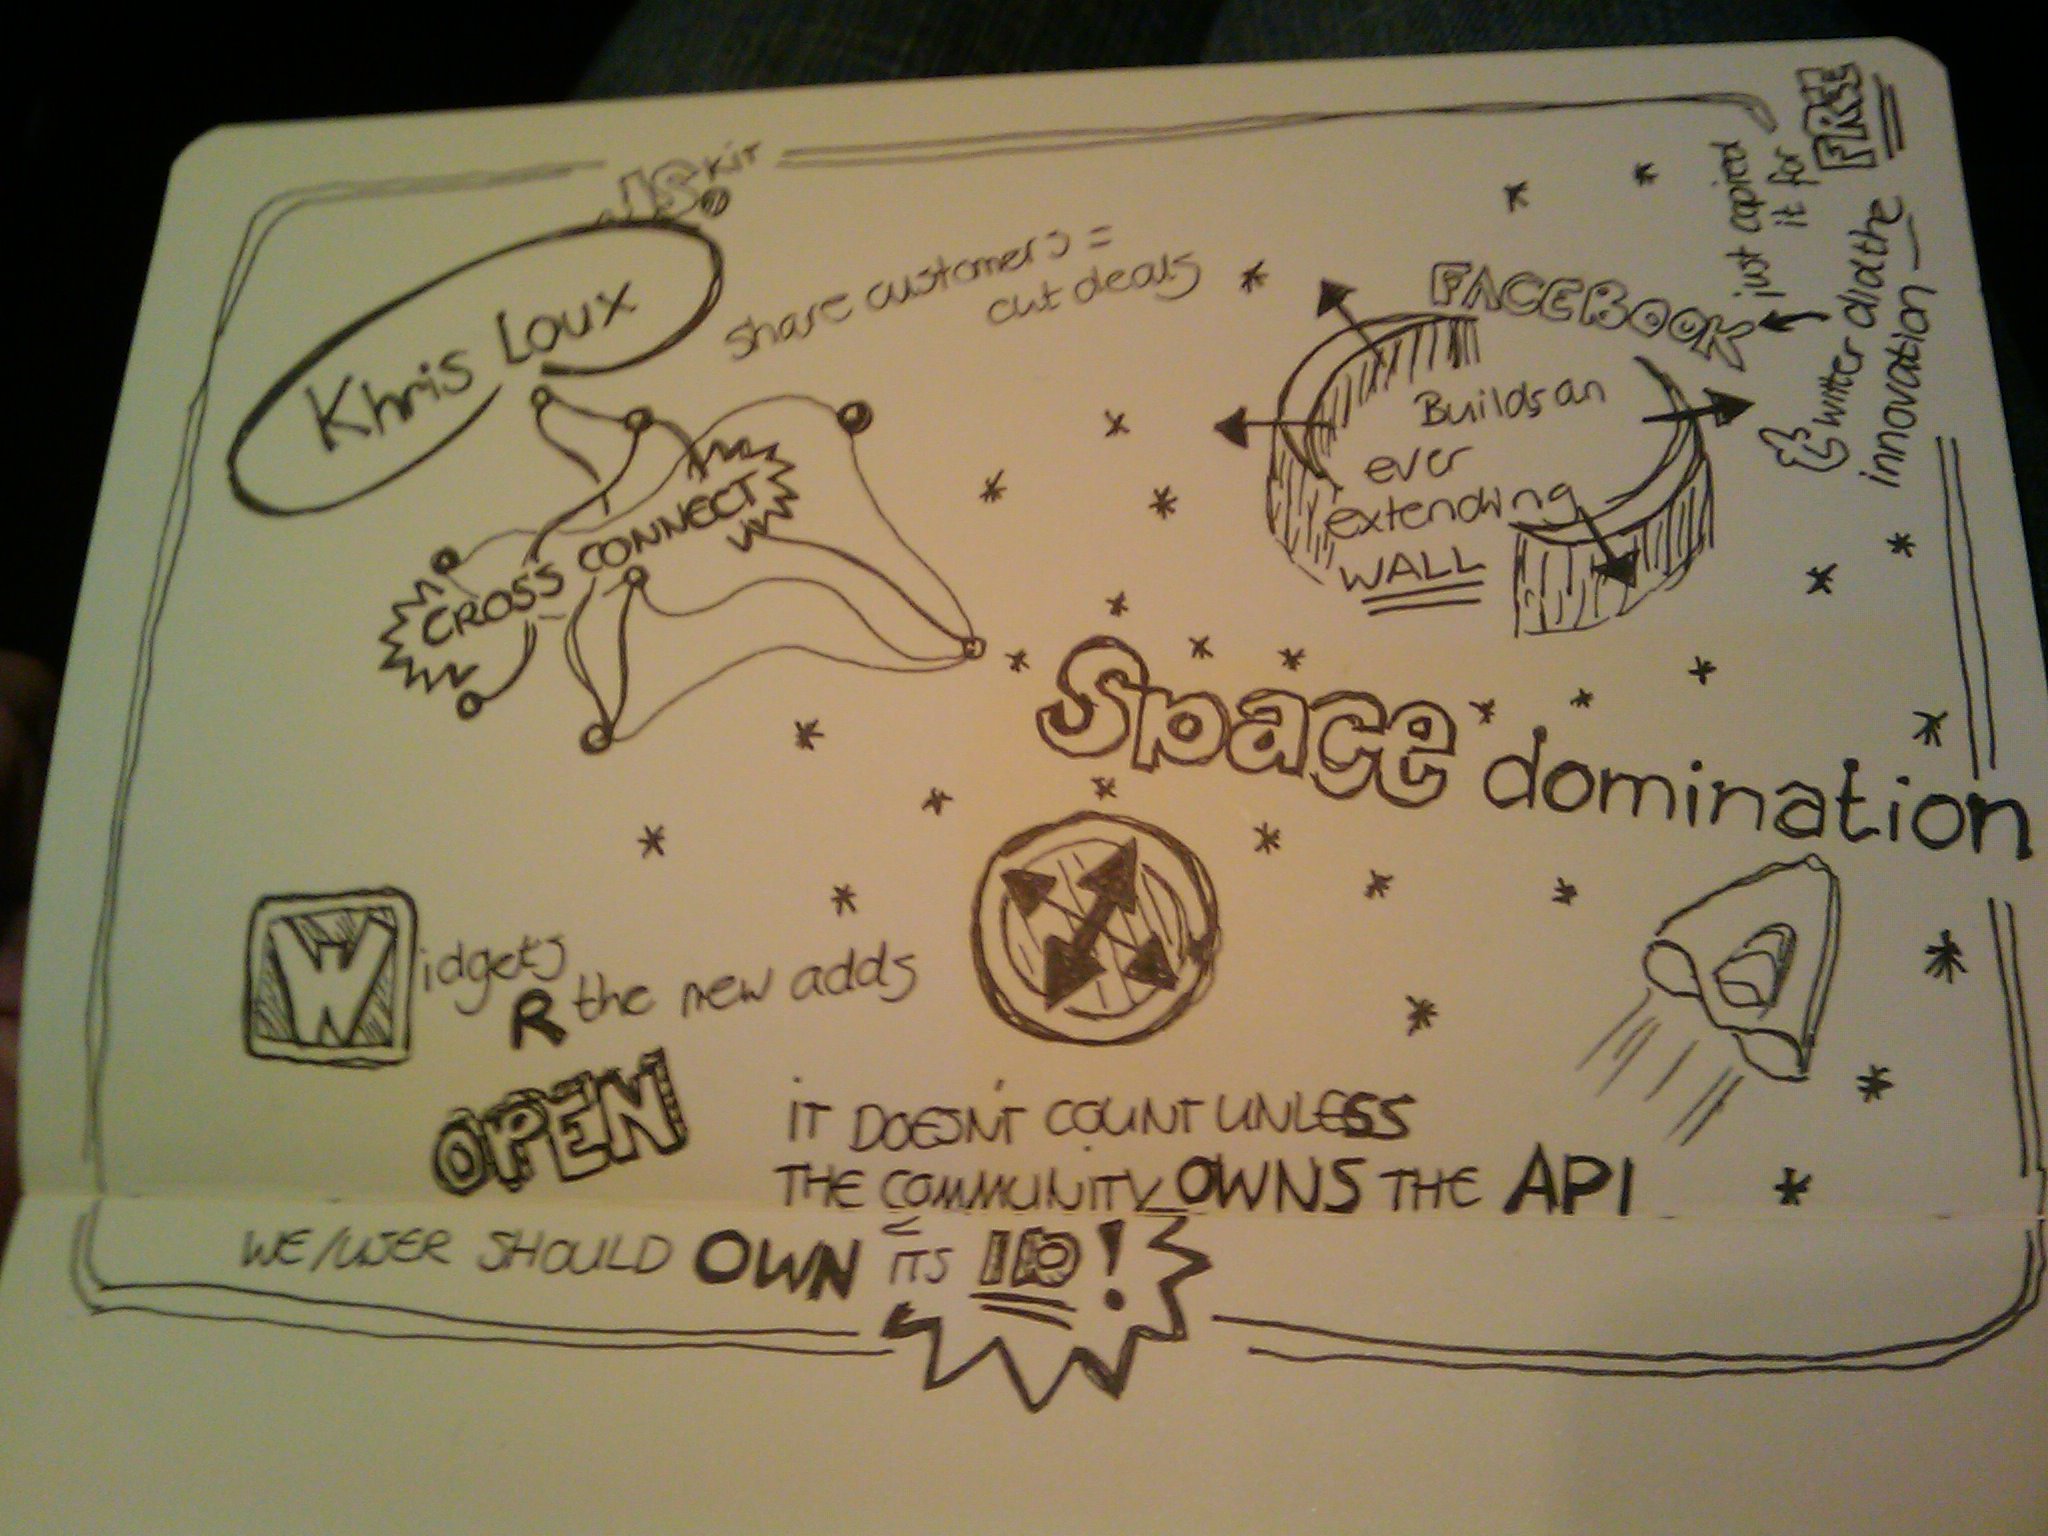 JS.Kit
Khris Loux
share customers =
cut deals
CROSS CONNECT
FACEBOOK
Builds an
ever
extending
WALL
twitter did the
innovation
just copied
it for
FREE
Space domination
Widgets
R the new adds
OPEN
IT DOESN'T COUNT UNLESS
THE COMMUNITY OWNS THE API
WE/USER SHOULD OWN ITS ID!